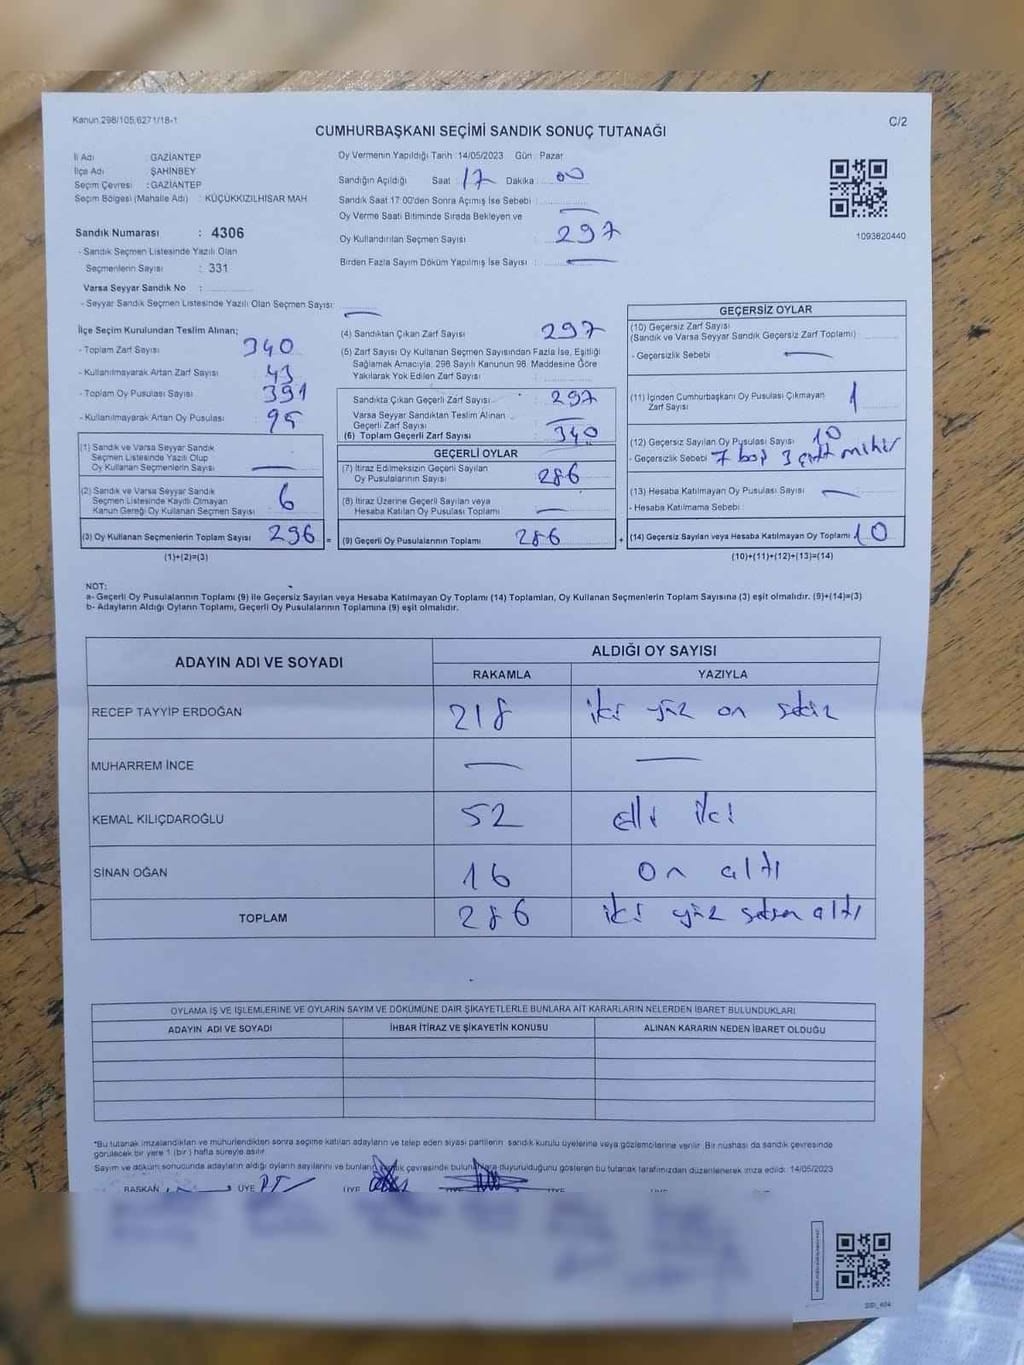 Kanun.298/105,6271/18-1
C/2
CUMHURBAŞKANI SEÇİMİ SANDIK SONUÇ TUTANAĞI
İl Adı GAZİANTEP
İlçe Adı ŞAHİNBEY
Seçim Çevresi : GAZİANTEP
Seçim Bölgesi (Mahalle Adı) : KÜÇÜKKIZILHİSAR MAH
Sandık Numarası : 4306
- Sandık Seçmen Listesinde Yazılı Olan
Seçmenlerin Sayısı : 331
Varsa Seyyar Sandık No :
- Seyyar Sandık Seçmen Listesinde Yazılı Olan Seçmen Sayısı:
Oy Vermenin Yapıldığı Tarih :14/05/2023 Gün : Pazar
Sandığın Açıldığı Saat : 17 Dakika : 00
Sandık Saat 17:00'den Sonra Açımış İse Sebebi :
Oy Verme Saati Bitiminde Sırada Bekleyen ve
Oy Kullandırılan Seçmen Sayısı : 297
Birden Fazla Sayım Döküm Yapılmış İse Sayısı : —
1093820440
İlçe Seçim Kurulundan Teslim Alınan;
- Toplam Zarf Sayısı 340
- Kullanılmayarak Artan Zarf Sayısı 43
- Toplam Oy Pusulası Sayısı 391
- Kullanılmayarak Artan Oy Pusulası : 95
(1) Sandık ve Varsa Seyyar Sandık
Seçmen Listesinde Yazılı Olup
Oy Kullanan Seçmenlerin Sayısı : —
(2) Sandık ve Varsa Seyyar Sandık
Seçmen Listesinde Kayıtlı Olmayan
Kanun Gereği Oy Kullanan Seçmen Sayısı : 6
(3) Oy Kullanan Seçmenlerin Toplam Sayısı : 296 =
(1)+(2)=(3)
(4) Sandıktan Çıkan Zarf Sayısı : 297
(5) Zarf Sayısı Oy Kullanan Seçmen Sayısından Fazla İse, Eşitliği
Sağlamak Amacıyla, 298 Sayılı Kanunun 98. Maddesine Göre
Yakılarak Yok Edilen Zarf Sayısı :
Sandıkta Çıkan Geçerli Zarf Sayısı : 297
Varsa Seyyar Sandıktan Teslim Alınan
Geçerli Zarf Sayısı : —
(6) Toplam Geçerli Zarf Sayısı : 340
GEÇERLİ OYLAR
(7) İtiraz Edilmeksizin Geçerli Sayılan
Oy Pusulalarının Sayısı : 286
(8) İtiraz Üzerine Geçerli Sayılan veya
Hesaba Katılan Oy Pusulası Toplamı : —
(9) Geçerli Oy Pusulalarının Toplamı : 286 +
GEÇERSİZ OYLAR
(10) Geçersiz Zarf Sayısı
(Sandık ve Varsa Seyyar Sandık Geçersiz Zarf Toplamı) :
- Geçersizlik Sebebi : —
(11) İçinden Cumhurbaşkanı Oy Pusulası Çıkmayan
Zarf Sayısı : 1
(12) Geçersiz Sayılan Oy Pusulası Sayısı : 10
- Geçersizlik Sebebi : 7 boş 3 çift mühür
(13) Hesaba Katılmayan Oy Pusulası Sayısı : —
- Hesaba Katılmama Sebebi :
(14) Geçersiz Sayılan veya Hesaba Katılmayan Oy Toplamı : 10
(10)+(11)+(12)+(13)=(14)
NOT:
a- Geçerli Oy Pusulalarının Toplamı (9) ile Geçersiz Sayılan veya Hesaba Katılmayan Oy Toplamı (14) Toplamları, Oy Kullanan Seçmenlerin Toplam Sayısına (3) eşit olmalıdır. (9)+(14)=(3)
b- Adayların Aldığı Oyların Toplamı, Geçerli Oy Pusulalarının Toplamına (9) eşit olmalıdır.
ADAYIN ADI VE SOYADI ALDIĞI OY SAYISI
RAKAMLA YAZIYLA
RECEP TAYYİP ERDOĞAN 218 iki yüz on sekiz
MUHARREM İNCE — —
KEMAL KILIÇDAROĞLU 52 elli iki
SİNAN OĞAN 16 on altı
TOPLAM 286 iki yüz seksen altı
OYLAMA İŞ VE İŞLEMLERİNE VE OYLARIN SAYIM VE DÖKÜMÜNE DAİR ŞİKAYETLERLE BUNLARA AİT KARARLARIN NELERDEN İBARET BULUNDUKLARI
ADAYIN ADI VE SOYADI İHBAR İTİRAZ VE ŞİKAYETİN KONUSU ALINAN KARARIN NEDEN İBARET OLDUĞU
*Bu tutanak imzalandıktan ve mühürlendikten sonra seçime katılan adayların ve talep eden siyasi partilerin sandık kurulu üyelerine veya gözlemcilerine verilir. Bir nüshası da sandık çevresinde
görülecek bir yere 1 (bir) hafta süreyle asılır.
Sayım ve döküm sonucunda adayların aldığı oyların sayılarını ve bunların çevresinde duyurulduğunu gösteren bu tutanak tarafımızdan düzenlenerek imza edildi. 14/05/2023
BAŞKAN ÜYE ÜYE